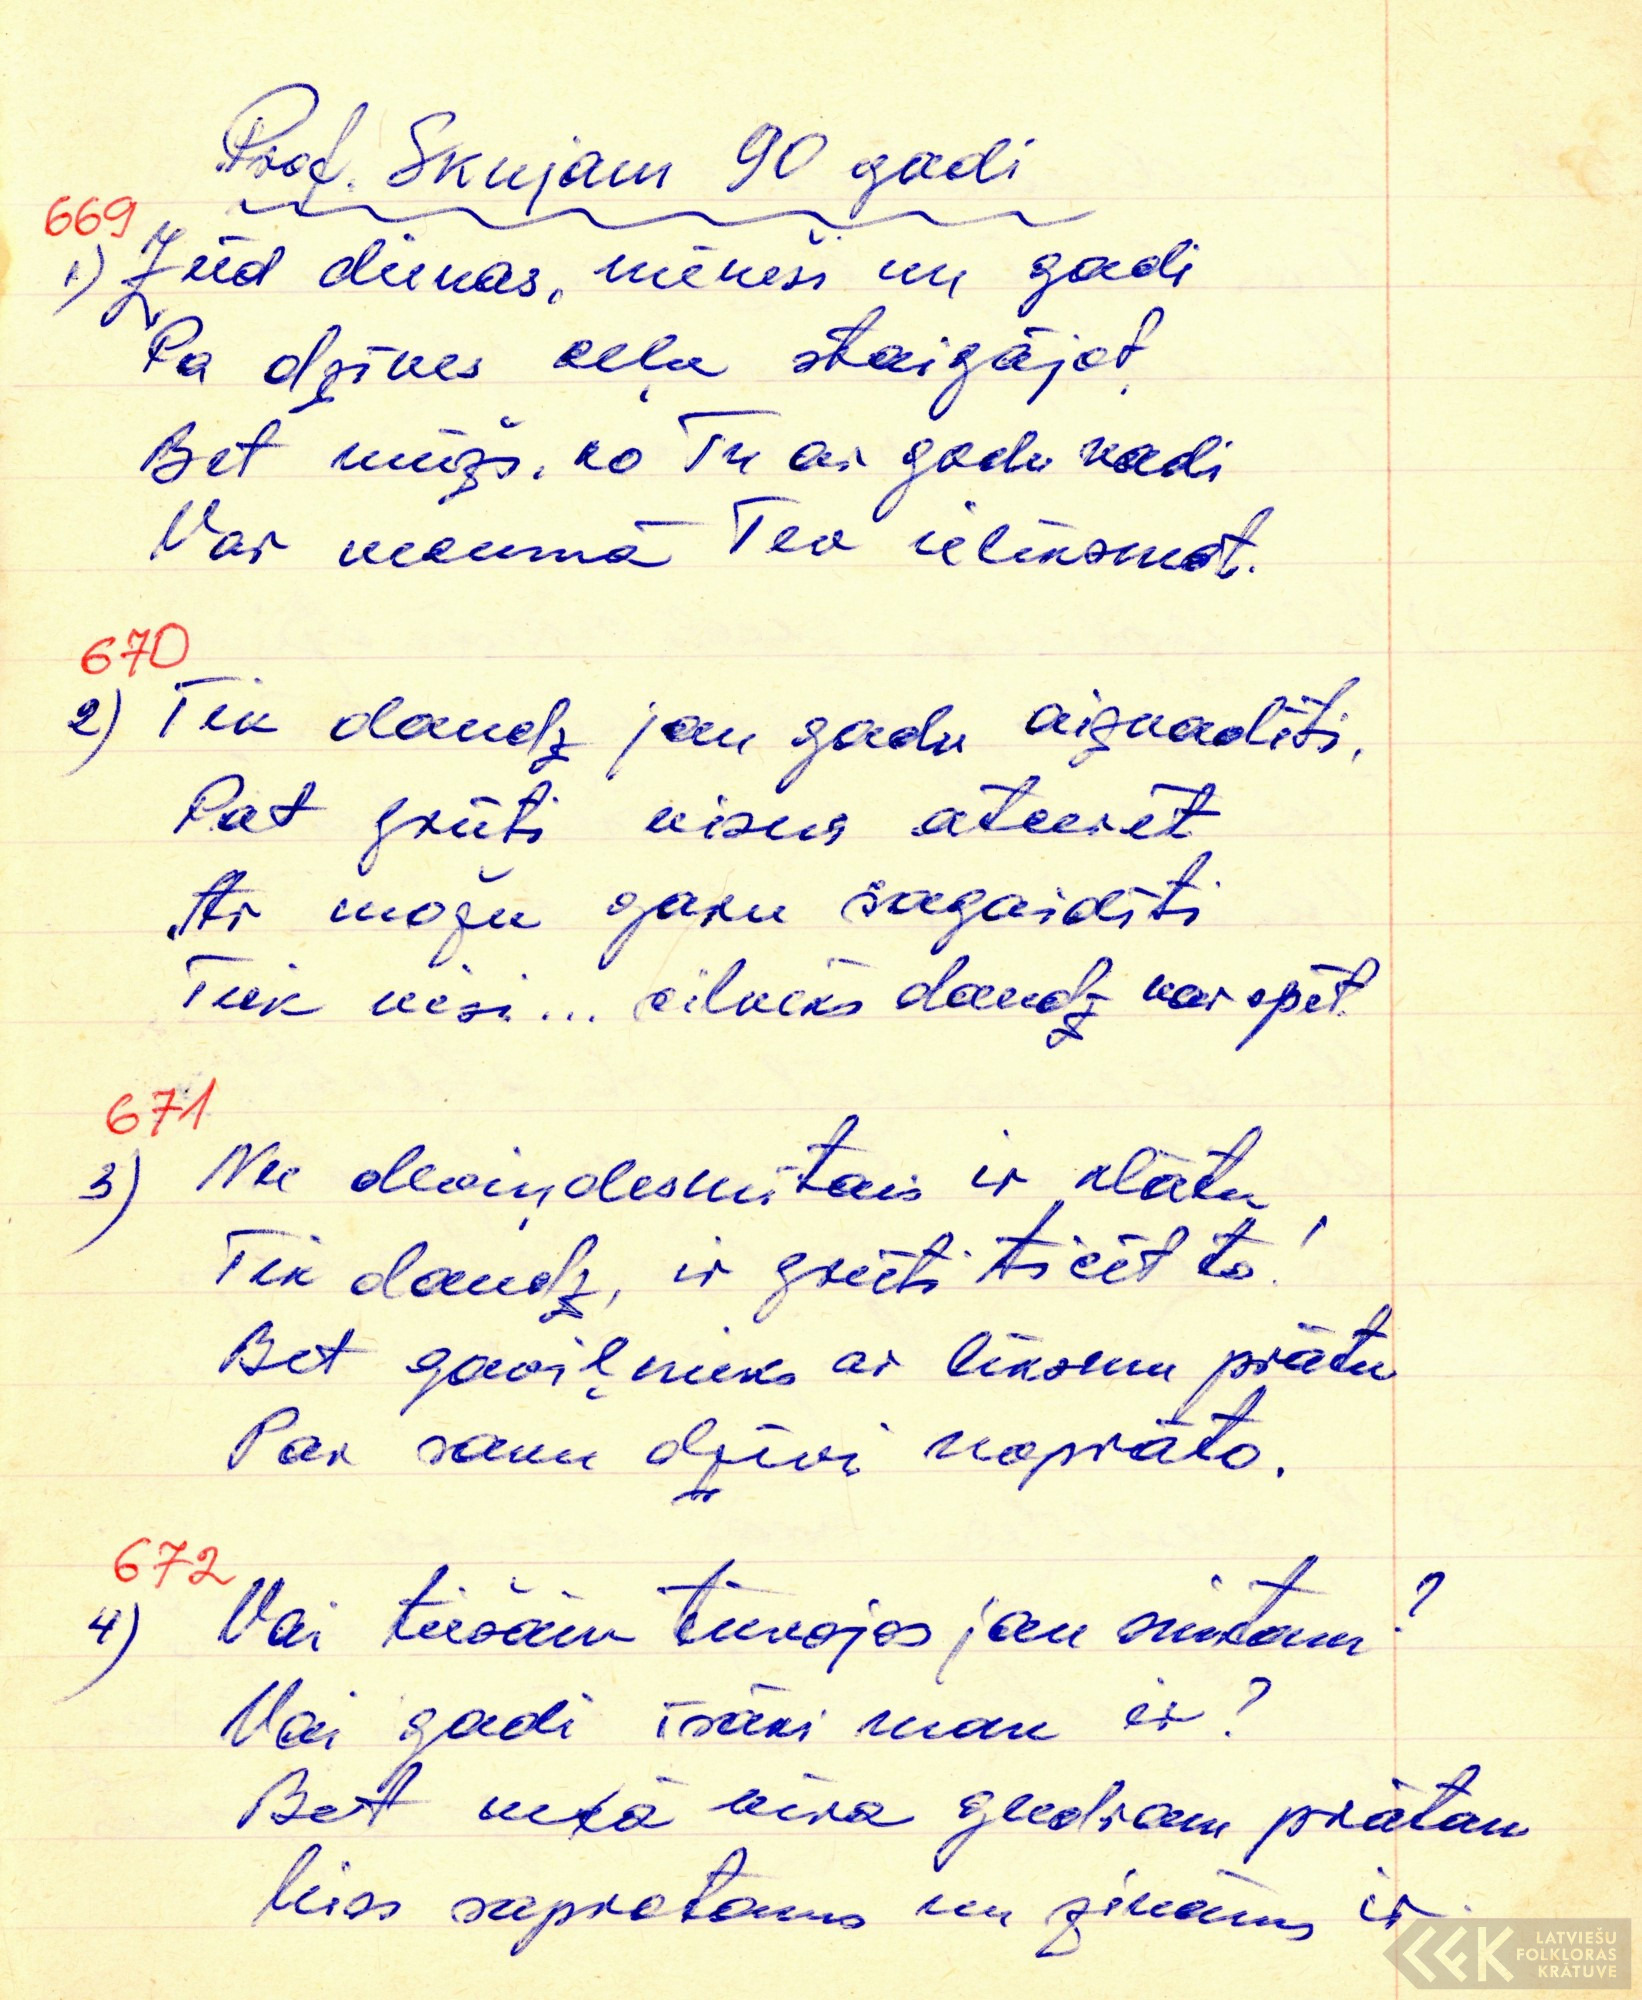 Prof. Skujam 90 gadi
669
1) Zūd dienas, mēneši un gadi
Pa dzīves ceļu staigājot,
Bet mūžs, ko Tu ar godu vadi
Var vecumā Tev ielīksmot.
670
2) Tik daudz jau gadu aizvadīti,
Pat grūti visus atcerēt
Ar možu garu sagaidīti
Tiek visi... cilvēks daudz var spēt.
671
3) Nu deviņdesmitais ir klātu
Tik daudz, ir grūti ticēt to!
Bet gaviļnieks ar līksmu prātu
Par savu dzīvi noprāto.
672
4) Vai tiešām tuvojos jau simtam?
Vai gadi īsāki man ir?
Bet vecā vīra gudram prātam
Viss saprotams un zināms ir.
LATVIEŠU
FOLKLORAS
KRĀTUVE